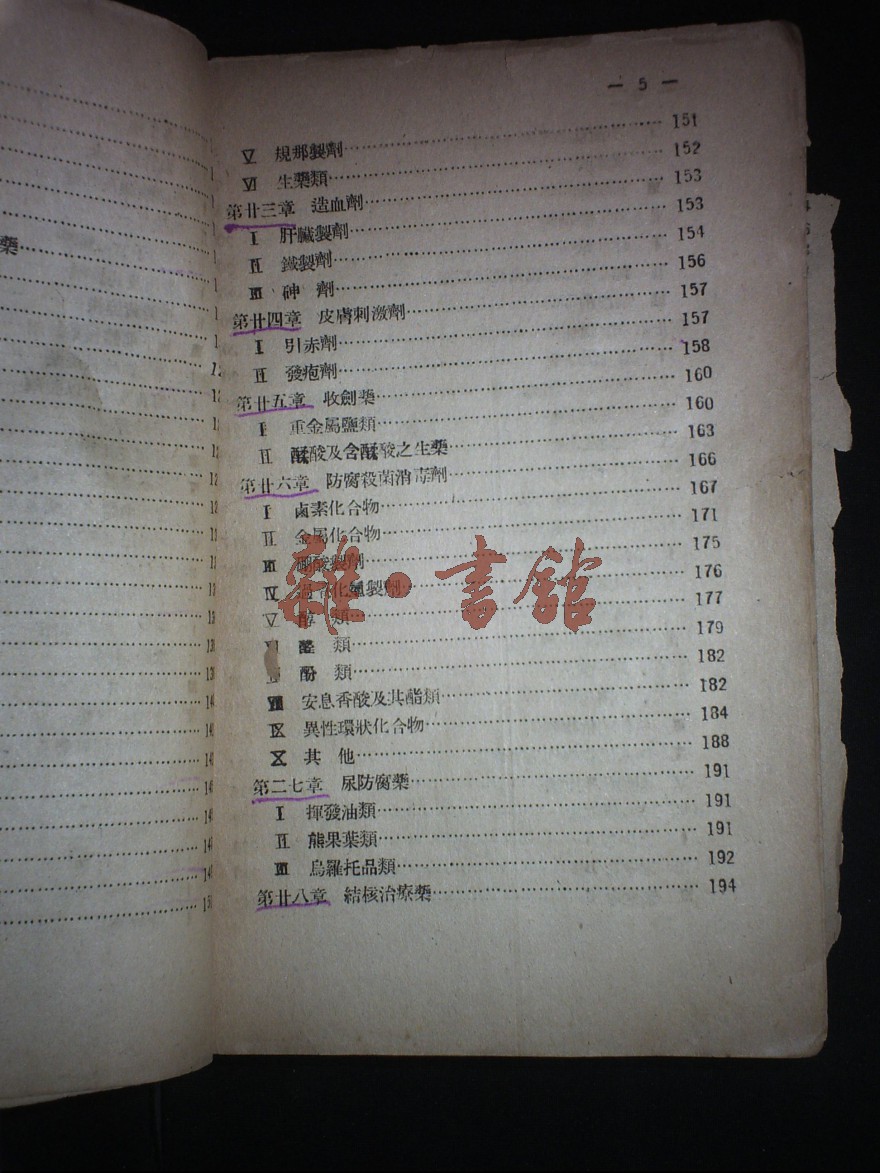 — 5 —
Ⅴ 規那製劑……151
Ⅵ 生藥類……152
第廿三章 造血劑……153
Ⅰ 肝臟製劑……153
Ⅱ 鐵製劑……154
Ⅲ 砷 劑……156
第廿四章 皮膚刺激劑……157
Ⅰ 引赤劑……157
Ⅱ 發疱劑……158
第廿五章 收劍藥……160
Ⅰ 重金屬鹽類……160
Ⅱ 酸及含酸之生藥……163
第廿六章 防腐殺菌消毒劑……166
Ⅰ 鹵素化合物……167
Ⅱ 金屬化合物……171
Ⅲ 酸製劑……175
Ⅳ 化製劑……176
Ⅴ 醇 類……177
類……179
酚 類……182
Ⅷ 安息香酸及其酯類……182
Ⅸ 異性環狀化合物……184
Ⅹ 其 他……188
第二七章 尿防腐藥……191
Ⅰ 揮發油類……191
Ⅱ 熊果葉類……191
Ⅲ 烏羅托品類……192
第廿八章 結核治療藥……194
藥
雜·書館